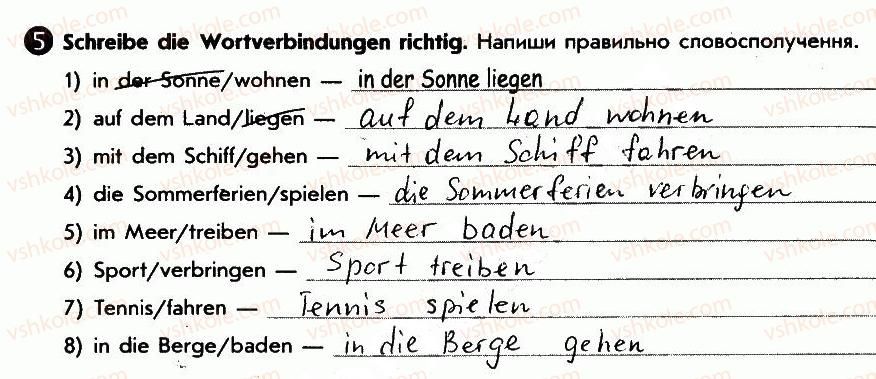 5 Schreibe die Wortverbindungen richtig. Напиши правильно словосполучення.
1) in der Sonne/wohnen — in der Sonne liegen
2) auf dem Land/liegen — auf dem Land wohnen
3) mit dem Schiff/gehen — mit dem Schiff fahren
4) die Sommerferien/spielen — die Sommerferien verbringen
5) im Meer/treiben — im Meer baden
6) Sport/verbringen — Sport treiben
7) Tennis/fahren — Tennis spielen
8) in die Berge/baden — in die Berge gehen
vshkole.com